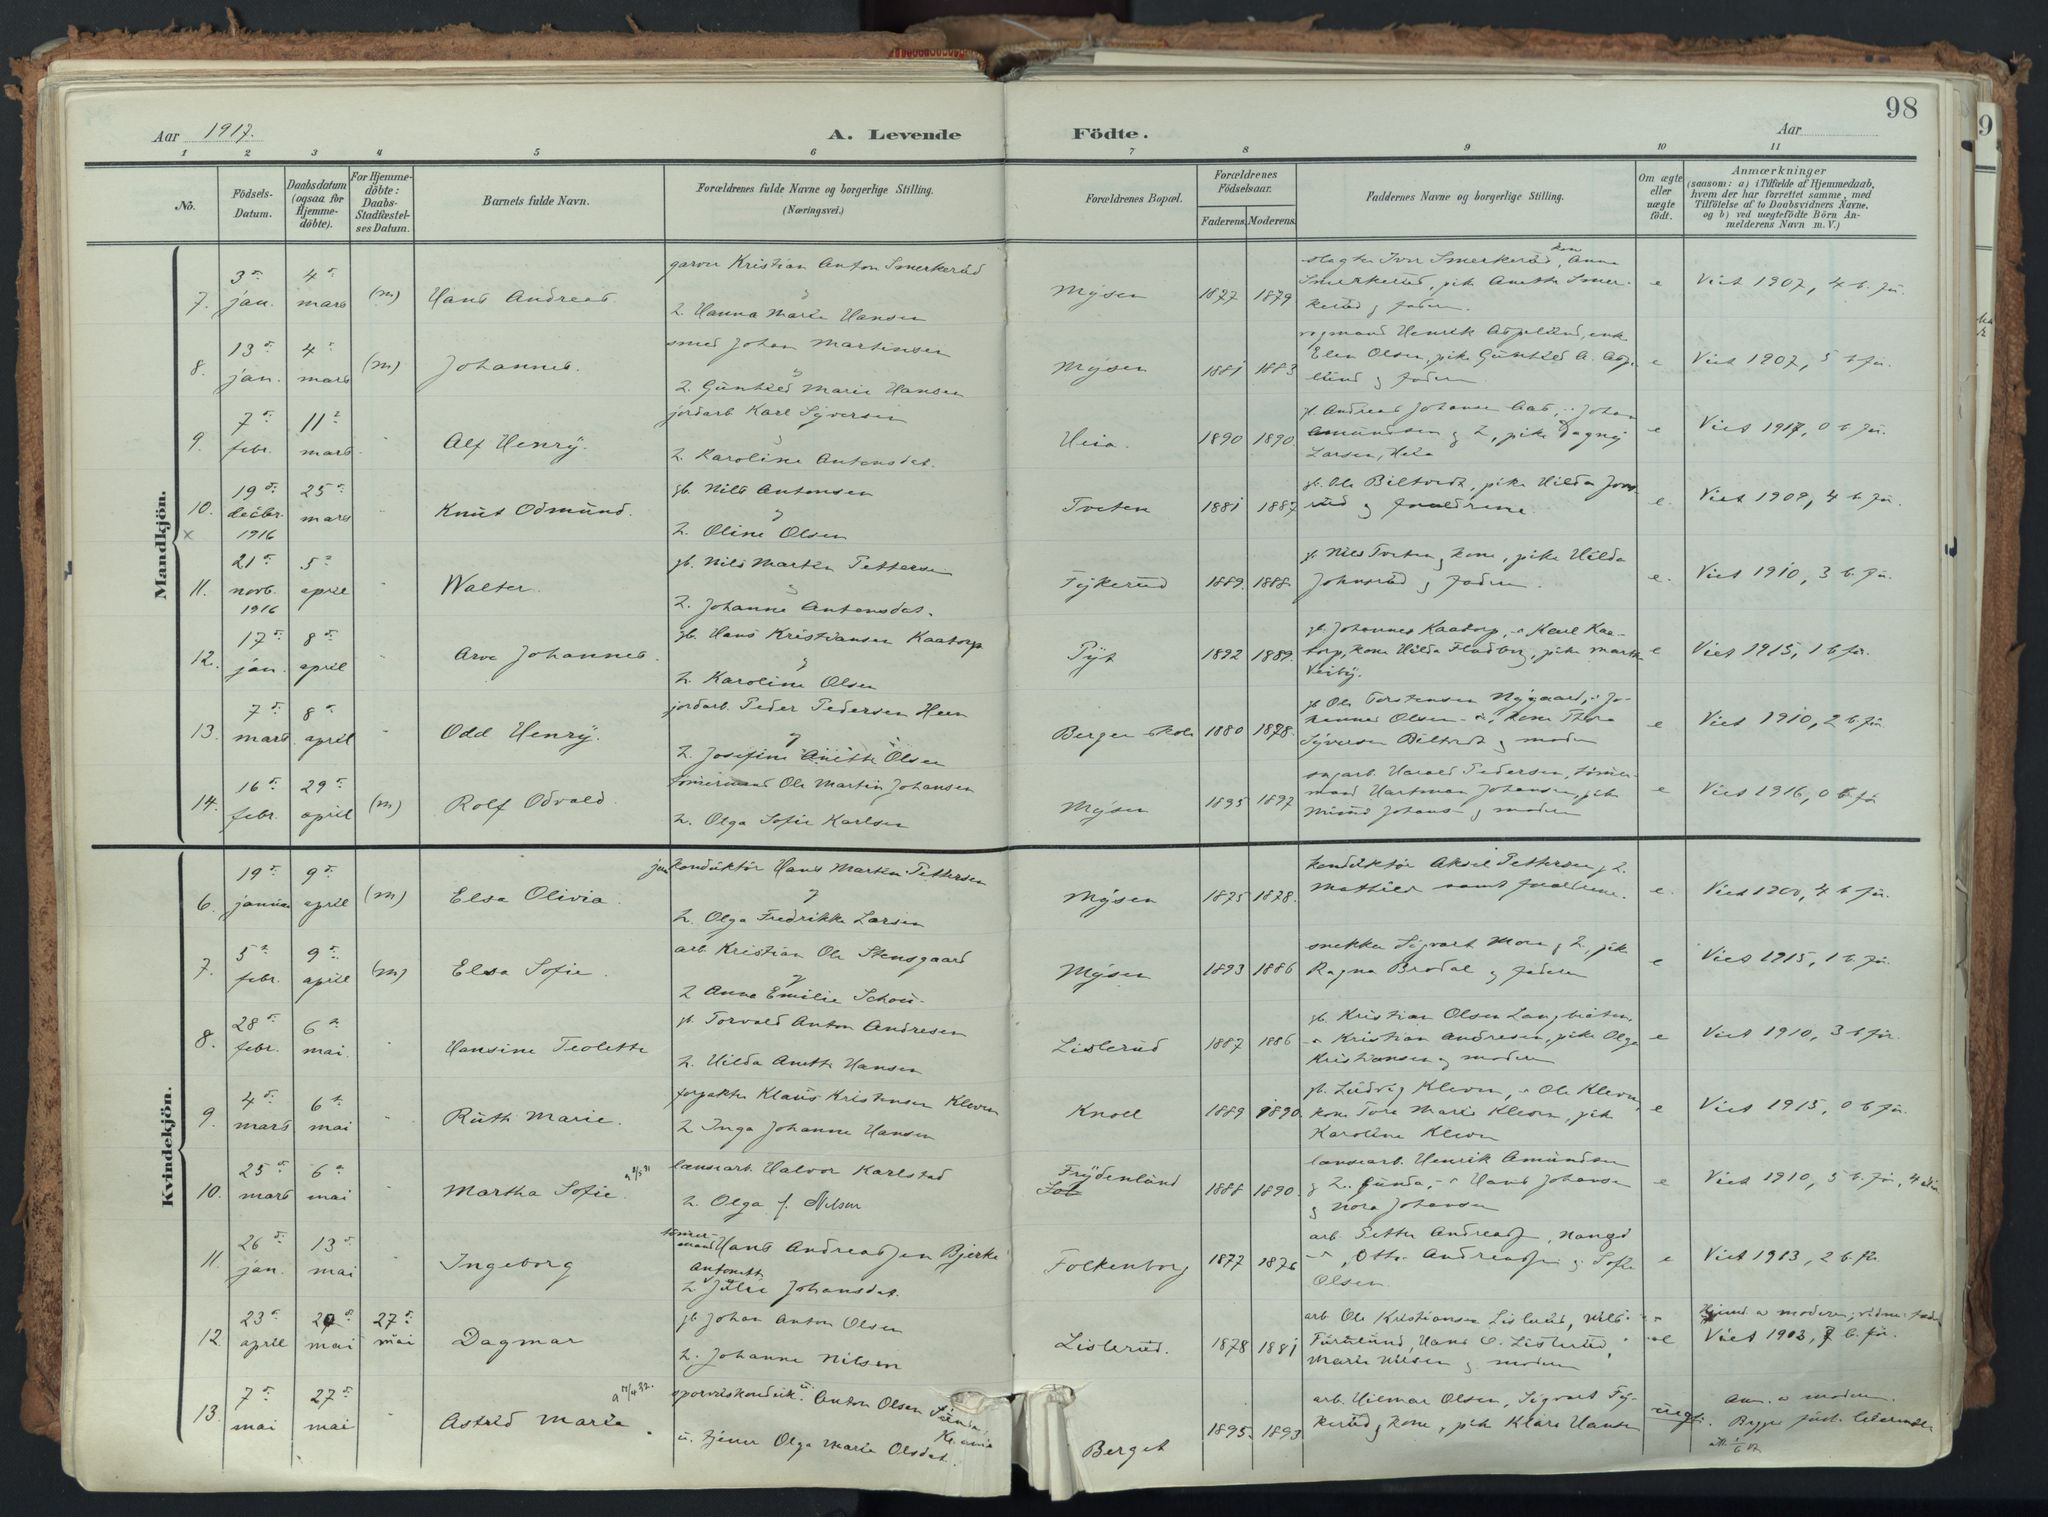 98
Aar 1917.
A. Levende Födte.
Aar
1 2 3 4 5 6 7 8 9 10 11
No.
Födsels-Datum.
Daabsdatum (ogsaa for Hjemme-döbte).
For Hjemme-döbte: Daabs-Stadfæstel-ses Datum.
Barnets fulde Navn.
Forældrenes fulde Navne og borgerlige Stilling.
(Næringsvei.)
Forældrenes Bopæl.
Forældrenes Födselsaar.
Faderens. Moderens.
Faddernes Navne og borgerlige Stilling.
Om ægte eller uægte födt.
Anmærkninger
(saasom: a) i Tilfælde af Hjemmedaab,
hvem der har forrettet samme, med
Tilföielse af to Daabsvidners Navne.
og b) ved uægtefödte Börn An-
melderens Navn m. V.)
Mandkjön.
7. 3 jan. 4 mars (m) Hans Andreas.
garver Kristian Anton Smerkerud
& Hanna Marie Hansen
Mysen 1877 1879
Ivar Smerkerud, kone Anna
Smerkerud, pike Anette Smer-
kerud og faderen.
e Viet 1907, 4 b. før.
8. 13 jan. 4 mars (m) Johannes.
smed Johan Martinsen
& Gunhild Marie Hansen
Mysen 1881 1883
vogmand Henrik Aspelund, enke
Elen Olsen, pike Gunhild A. Asp-
lund og faderen
e Viet 1907, 5 b. før.
9. 7 febr. 11 mars Alf Henry.
jordarb. Karl Syversen
& Karoline Antonsdat.
Heia. 1890 1890.
Andreas Johansen Aas, Johan
Amundsen og &, pike Dagny
Larsen, Heia
e Viet 1917, 0 b. før.
10. 19 decbr. 1916 25 mars Knut Odmund.
gb. Nils Antonsen
& Oline Olsen
Tveten 1881 1887
gb. Ole Biltvedt, pike Hilda Jons-
rud og forældrene.
e. Viet 1909, 4 b. før.
11. 21 novb. 1916 5 april Walter.
gb. Nils Martin Pettersen
& Johanne Antonsdat.
Fykerud 1889. 1888.
gb. Nils Tveten og kone, pike Hilda
Johnsrud og faderen.
e. Viet 1910, 3 b. før.
12. 17 jan. 8 april Arve Johannes.
gb. Hans Kristiansen Kaatorp
& Karoline Olsen
Pyt 1892 1889.
gb. Johannes Kaatorp, Karl Kaa-
torp, kone Hilda Fladberg, pike Marthe
Veiby.
e Viet 1915, 1 b. før.
13. 7 mars 8 april Odd Henry.
jordarb. Peder Pedersen Heen
& Josefine Anette Olsen
Berger skole 1880 1878.
gb. Ole Torstensen Nygaard, Jo-
hannes Olsen, kone Thora
Syversen Biltvedt og moderen
e Viet 1910, 2 b. før.
14. 16 febr. 29 april (m) Rolf Odvald.
tømmermand Ole Martin Johansen
& Olga Sofie Karlsen
Mysen 1895 1897
sagarb. Harald Pedersen, tømmer-
mand Hartman Johansen, pike
Johans og moderen
e Viet 1916, 0 b. før
Kvindekjön.
6. 19 januar 9 april (m) Elsa Olivia.
konduktør Hans Martin Pettersen
& Olga Fredrikke Larsen
Mysen 1875 1878.
konduktør Aksel Pettersen og &
Mathilde samt forældrene.
e. Viet 1900, 4 b. før.
7. 5 febr. 9 april (m) Elsa Sofie.
arb. Kristian Ole Stensgaard
& Anna Emilie Schou
Mysen 1893 1886
snekker Sigvart Moen og &, pike
Ragna Brodal og faderen
e Viet 1915, 1 b. før.
8. 28 febr. 6 mai. Hansine Teolette
gb. Torvald Anton Andresen
& Hilda Anette Hansen
Lislerud 1887 1886
gb. Kristian Olsen Langbraaten,
Kristian Andresen, pike Olga
Kristiansen og moderen
e Viet 1910, 3 b. før.
9. 4 mars 6 mai Ruth Marie.
forpakter Klaus Kristensen Kleven
& Inga Johanne Hansen
Knoll 1889 1890.
gb. Ludvig Kleven, Ole Kleven,
kone Tora Marie Kleven, pike
Karoline Kleven
e Viet 1915, 0 b. før.
10. 25 mars 6 mai Martha Sofie.
lænsearb. Halvor Karlstad
& Olga f. Nilsen
Frydenlund 1888 1890.
lænsearb. Henrik Amundsen
og & Gunda, Hans Johansen
og Nora Johansen
e Viet 1910, 5 b. før,
11. 26 jan. 13 mai Ingeborg
tømmermand Hans Andreassen Bjerke
& Antonette Julie Johansdat.
Folkenborg 1877 1876
arb. Petter Andreassen,
Otto Andreassen og Sofie
Olsen.
e Viet 1903, 2 b. før.
12. 23 april 20 mai 27 mai Dagmar
gb. Johan Anton Olsen
& Johanne Nilsen
Lislerud. 1878 1881
arb. Ole Kristiansen Lislerud, Nils
Furulund, Hans O. Lislerud,
Marie Nilsen og moderen
e Hjemd. av moderen;
Viet 1903, 7 b. før.
13. 7 mai 27 mai Astrid Marie.
sporveiskonduk. Anton Olsen
u. tjener Olga Marie Olsdat.
Berget 1895. 1893
arb. Hilmar Olsen, Sigvart Fy-
kerud og kone, pike Klara Hansen
uegte. Anm. av moderen.
Begge